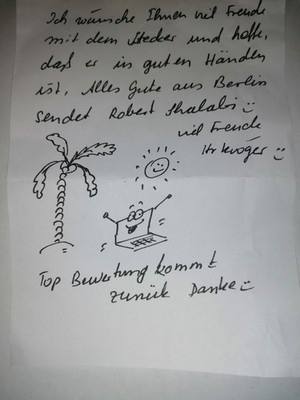 Ich wünsche Ihnen viel Freude
mit dem Stecker und hoffe,
daß er in guten Händen
ist, Alles Gute aus Berlin
sendet Robert Shalabi
viel Freude
Top Bewertung kommt
zurück Danke